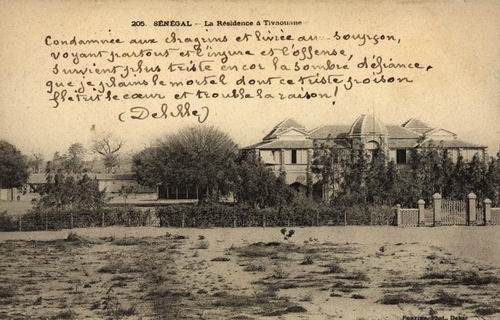 205. SÉNÉGAL — La Résidence à Tivaouane
Condamnée aux chagrins et livrée au soupçon,
voyant partout et l'injure et l'offense,
Survient plus triste encor la sombre défiance,
que je plains le mortel dont ce triste poison
flétrit le cœur et trouble la raison!
(Delille)
Phot. Dakar